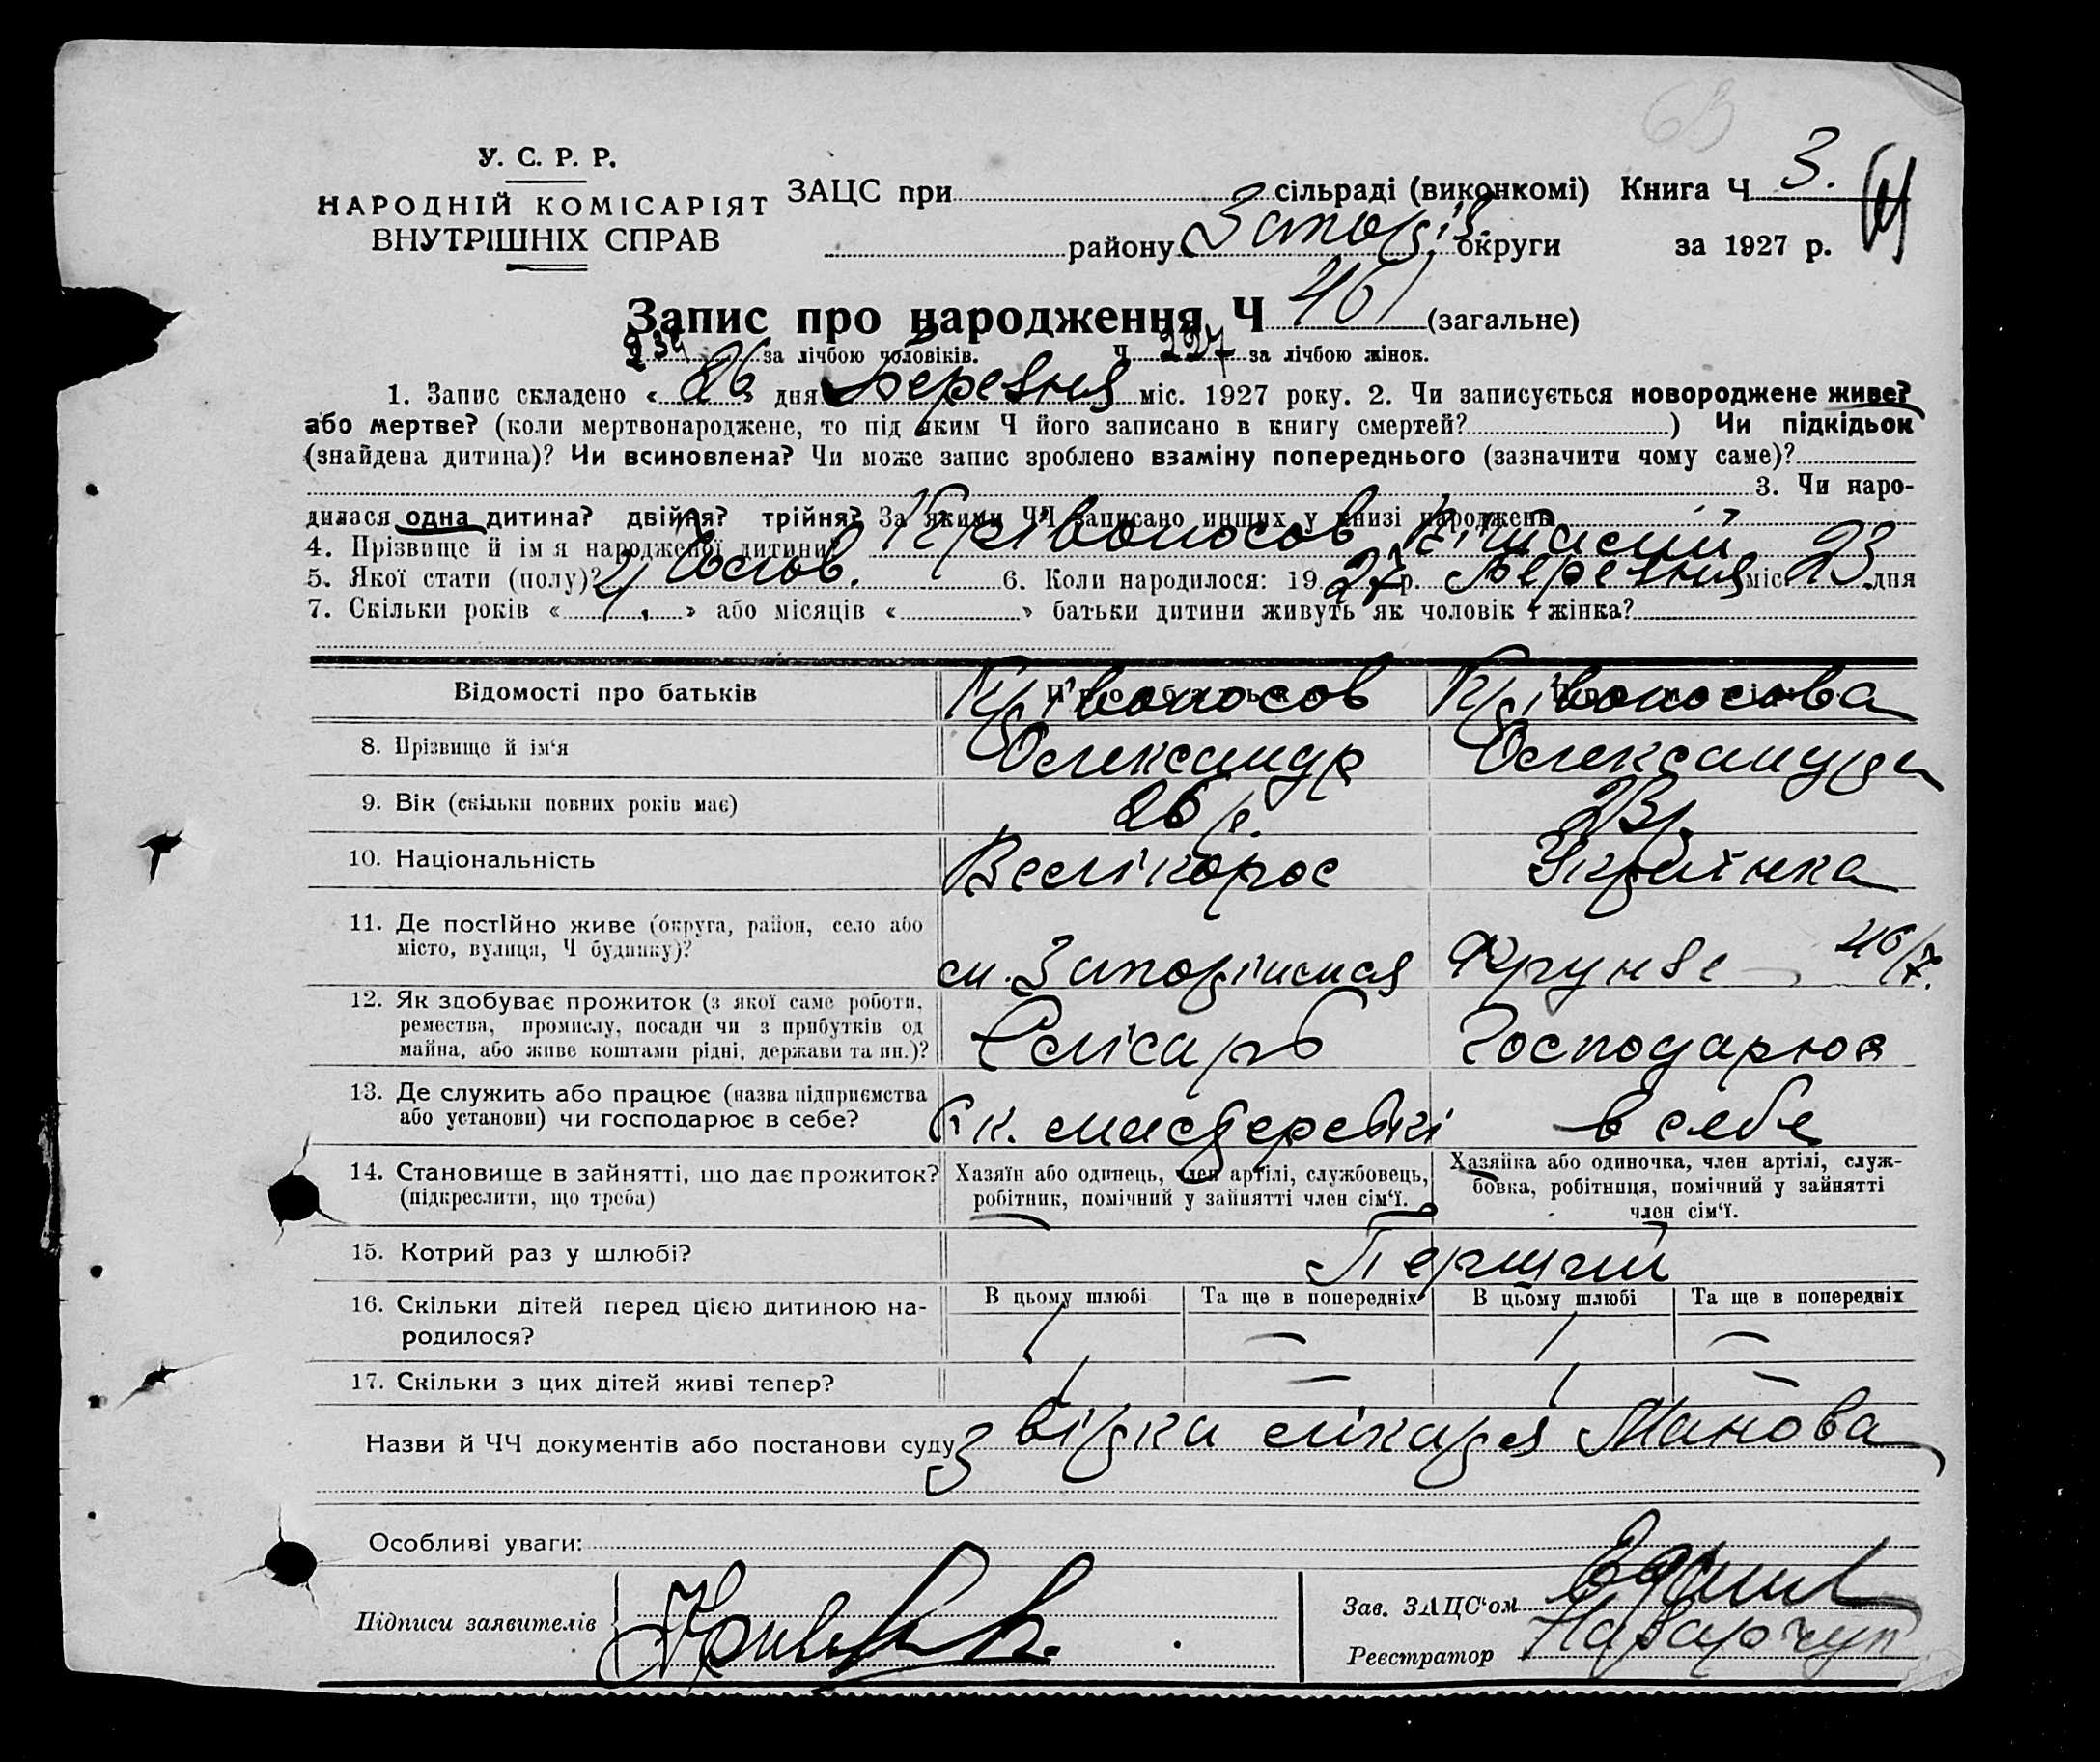 63
У. С. Р. Р.
НАРОДНІЙ КОМІСАРІЯТ
ВНУТРІШНІХ СПРАВ
ЗАЦС при сільраді (виконкомі) Книга Ч 3.
району Запоріз. округи за 1927 р.
Запис про народження Ч 461 (загальне)
234 за лічбою чоловіків. Ч 227 за лічбою жінок.
1. Запис складено « 26 » дня Березня міс. 1927 року. 2. Чи записується новороджене живе?
або мертве? (коли мертвонароджене, то під яким Ч його записано в книгу смертей? ) Чи підкідьок
(знайдена дитина)? Чи всиновлена? Чи може запис зроблено взаміну попереднього (зазначити чому саме)?
3. Чи наро-
дилася одна дитина? двійня? трійня? За якими ЧЧ записано инших у книзі народжень
4. Прізвище й ім'я народженої дитини Крівоносов
5. Якої стати (полу)? Чолов. 6. Коли народилося: 1927 р. Березня міс. 23 дня
7. Скільки років « » або місяців « » батьки дитини живуть як чоловік і жінка?
Відомості про батьків
8. Прізвище й ім‘я Крівоносов Олександр Крівоносова Олександра
9. Вік (скільки повних років має) 26 р. 23 р.
10. Національність Велікорос Українка
11. Де постійно живе (округа, район, село або
місто, вулиця, Ч будинку)? м. Запоріжжя Фрунзе 46/7.
12. Як здобуває прожиток (з якої саме роботи,
ремества, промислу, посади чи з прибутків од
майна, або живе коштами рідні, держави та ин.)? Слісарь Господарює
13. Де служить або працює (назва підприємства
або установи) чи господарює в себе? майстерські в себе
14. Становище в зайнятті, що дає прожиток?
(підкреслити, що треба)
Хазяїн або одинець, член артілі, службовець,
робітник, помічний у зайнятті член сім‘ї.
Хазяйка або одиночка, член артілі, служ-
бовка, робітниця, помічний у зайнятті
член сім‘ї.
15. Котрий раз у шлюбі? Перший
16. Скільки дітей перед цією дитиною на-
родилося?
В цьому шлюбі Та ще в попередніх В цьому шлюбі Та ще в попередніх
1 — 1 —
17. Скільки з цих дітей живі тепер? 1 — 1 —
Назви й ЧЧ документів або постанови суду звідка лікаря Манова
Особливі уваги:
Підписи заявителів
Зав. ЗАЦС‘ом
Реєстратор